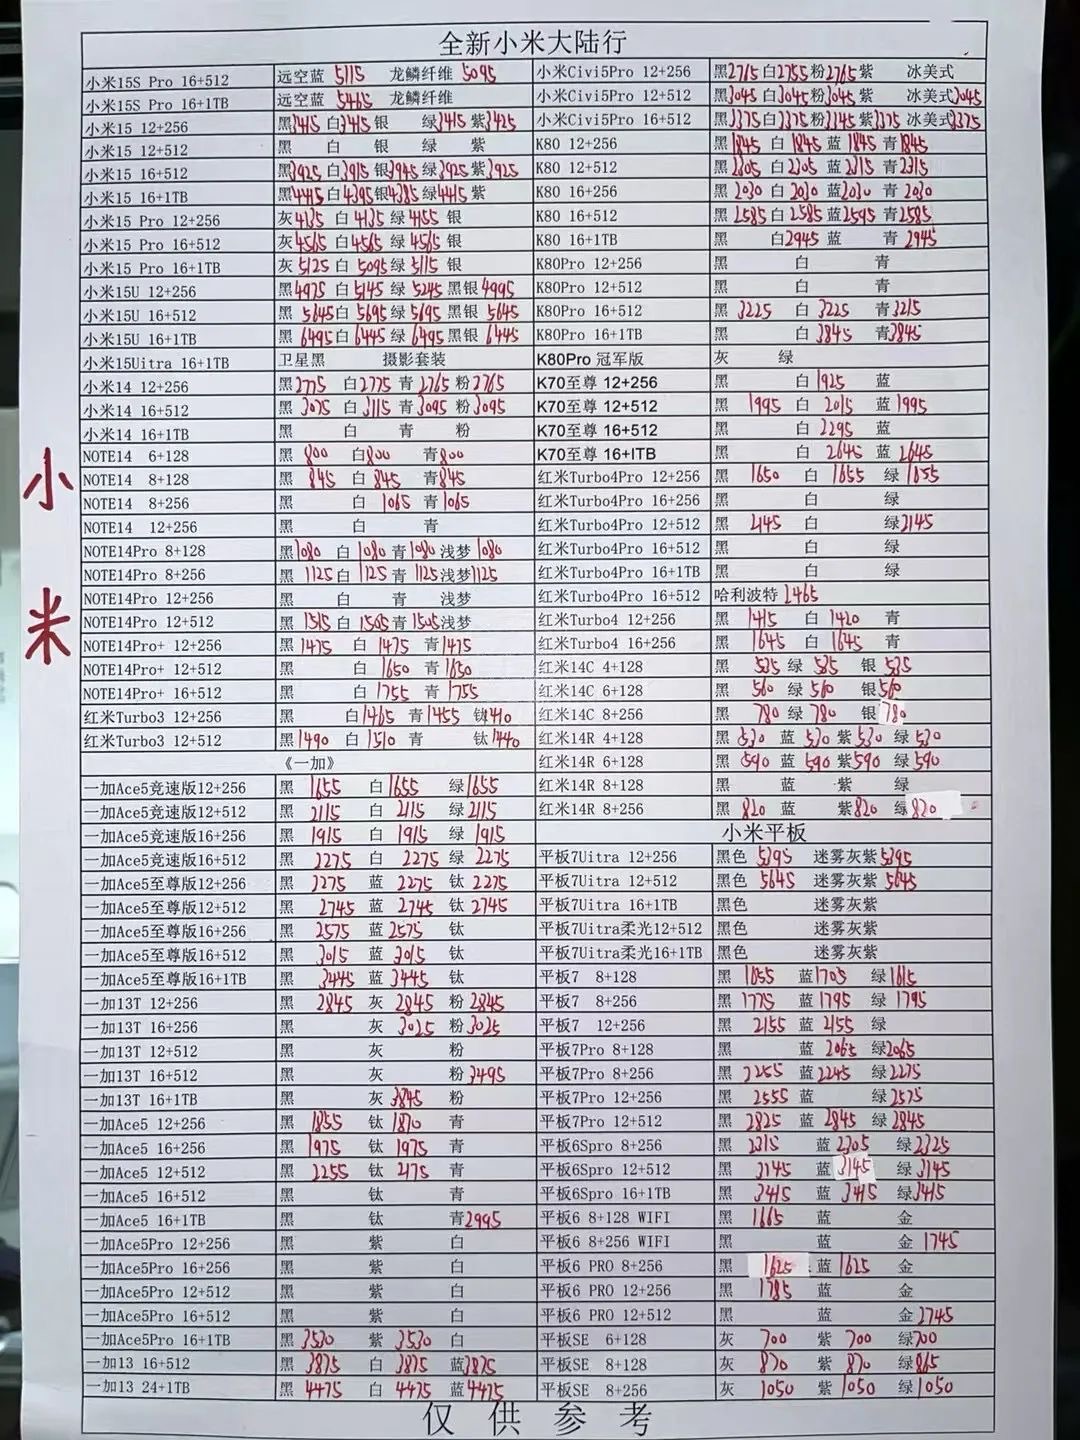 全新小米大陆行
小米
小米15S Pro 16+512 远空蓝 5115 龙鳞纤维 5095
小米15S Pro 16+1TB 远空蓝 5465 龙鳞纤维
小米15 12+256 黑3415 白3415 银 绿3415 紫3425
小米15 12+512 黑 白 银 绿 紫
小米15 16+512 黑3925 白3915 银3945 绿3925 紫3925
小米15 16+1TB 黑4445 白4395 银4385 绿4445 紫
小米15 Pro 12+256 灰4135 白4135 绿4155 银
小米15 Pro 16+512 灰4565 白4565 绿4565 银
小米15 Pro 16+1TB 灰5125 白5095 绿5115 银
小米15U 12+256 黑4975 白5145 绿5245 黑银4995
小米15U 16+512 黑5645 白5695 绿5695 黑银5645
小米15U 16+1TB 黑6495 白6445 绿6495 黑银6445
小米15Uitra 16+1TB 卫星黑 摄影套装
小米14 12+256 黑2775 白2775 青2765 粉2765
小米14 16+512 黑3075 白3115 青3095 粉3095
小米14 16+1TB 黑 白 青 粉
NOTE14 6+128 黑800 白800 青800
NOTE14 8+128 黑845 白845 青845
NOTE14 8+256 黑 白1065 青1065
NOTE14 12+256 黑 白 青
NOTE14Pro 8+128 黑1080 白1080 青1080 浅梦1080
NOTE14Pro 8+256 黑1125 白1125 青1125 浅梦1125
NOTE14Pro 12+256 黑 白 青 浅梦
NOTE14Pro 12+512 黑1515 白1505 青1505 浅梦
NOTE14Pro+ 12+256 黑1475 白1475 青1475
NOTE14Pro+ 12+512 黑 白1650 青1650
NOTE14Pro+ 16+512 黑 白1755 青1755
红米Turbo3 12+256 黑 白1465 青1455 钛1410
红米Turbo3 12+512 黑1490 白1510 青 钛1440
《一加》
一加Ace5竞速版12+256 黑1655 白1655 绿1655
一加Ace5竞速版12+512 黑2115 白2115 绿2115
一加Ace5竞速版16+256 黑1915 白1915 绿1915
一加Ace5竞速版16+512 黑2275 白2275 绿2275
一加Ace5至尊版12+256 黑2275 蓝2275 钛2275
一加Ace5至尊版12+512 黑2745 蓝2745 钛2745
一加Ace5至尊版16+256 黑2575 蓝2575 钛
一加Ace5至尊版16+512 黑3015 蓝3015 钛
一加Ace5至尊版16+1TB 黑3445 蓝3445 钛
一加13T 12+256 黑2845 灰2845 粉2845
一加13T 16+256 黑 灰3025 粉3025
一加13T 12+512 黑 灰 粉
一加13T 16+512 黑 灰 粉3495
一加13T 16+1TB 黑 灰3845 粉
一加Ace5 12+256 黑1855 钛1870 青
一加Ace5 16+256 黑1975 钛1975 青
一加Ace5 12+512 黑2255 钛2175 青
一加Ace5 16+512 黑 钛 青
一加Ace5 16+1TB 黑 钛 青2995
一加Ace5Pro 12+256 黑 紫 白
一加Ace5Pro 16+256 黑 紫 白
一加Ace5Pro 12+512 黑 紫 白
一加Ace5Pro 16+512 黑 紫 白
一加Ace5Pro 16+1TB 黑3530 紫3530 白
一加13 16+512 黑3875 白3875 蓝3875
一加13 24+1TB 黑4475 白4475 蓝4475
小米Civi5Pro 12+256 黑2765 白2755 粉2765 紫 冰美式
小米Civi5Pro 12+512 黑3045 白3045 粉3045 紫 冰美式3045
小米Civi5Pro 16+512 黑3375 白3375 粉3145 紫3375 冰美式3375
K80 12+256 黑1845 白1845 蓝1845 青1845
K80 12+512 黑2305 白2305 蓝2315 青2315
K80 16+256 黑2030 白2030 蓝2030 青2030
K80 16+512 黑2585 白2585 蓝2595 青2585
K80 16+1TB 黑 白2945 蓝 青2945
K80Pro 12+256 黑 白 青
K80Pro 12+512 黑 白 青
K80Pro 16+512 黑3225 白3225 青3215
K80Pro 16+1TB 黑 白3845 青3845
K80Pro 冠军版 灰 绿
K70至尊 12+256 黑 白1925 蓝
K70至尊 12+512 黑1995 白2015 蓝1995
K70至尊 16+512 黑 白2295 蓝
K70至尊 16+ITB 黑 白2645 蓝2645
红米Turbo4Pro 12+256 黑1650 白1655 绿1655
红米Turbo4Pro 16+256 黑 白 绿
红米Turbo4Pro 12+512 黑2145 白 绿2145
红米Turbo4Pro 16+512 黑 白 绿
红米Turbo4Pro 16+1TB 黑 白 绿
红米Turbo4Pro 16+512 哈利波特2465
红米Turbo4 12+256 黑1415 白1420 青
红米Turbo4 16+256 黑1645 白1645 青
红米14C 4+128 黑535 绿535 银535
红米14C 6+128 黑560 绿560 银560
红米14C 8+256 黑780 绿780 银780
红米14R 4+128 黑530 蓝530 紫530 绿530
红米14R 6+128 黑590 蓝590 紫590 绿590
红米14R 8+128 黑 蓝 紫 绿
红米14R 8+256 黑820 蓝 紫820 绿820
小米平板
平板7Uitra 12+256 黑色5395 迷雾灰紫5395
平板7Uitra 12+512 黑色5645 迷雾灰紫5645
平板7Uitra 16+1TB 黑色 迷雾灰紫
平板7Uitra柔光12+512 黑色 迷雾灰紫
平板7Uitra柔光16+1TB 黑色 迷雾灰紫
平板7 8+128 黑1655 蓝1705 绿1615
平板7 8+256 黑1775 蓝1795 绿1795
平板7 12+256 黑2155 蓝2155 绿
平板7Pro 8+128 黑 蓝2065 绿2065
平板7Pro 8+256 黑2255 蓝2245 绿2275
平板7Pro 12+256 黑2555 蓝 绿2575
平板7Pro 12+512 黑2825 蓝2845 绿2845
平板6Spro 8+256 黑2315 蓝2305 绿2325
平板6Spro 12+512 黑3145 蓝3145 绿3145
平板6Spro 16+1TB 黑3415 蓝3415 绿3415
平板6 8+128 WIFI 黑1665 蓝 金
平板6 8+256 WIFI 黑 蓝 金1745
平板6 PRO 8+256 黑1625 蓝1625 金
平板6 PRO 12+256 黑1785 蓝 金
平板6 PRO 12+512 黑 蓝 金2745
平板SE 6+128 灰700 紫700 绿700
平板SE 8+128 灰870 紫870 绿865
平板SE 8+256 灰1050 紫1050 绿1050
仅供参考